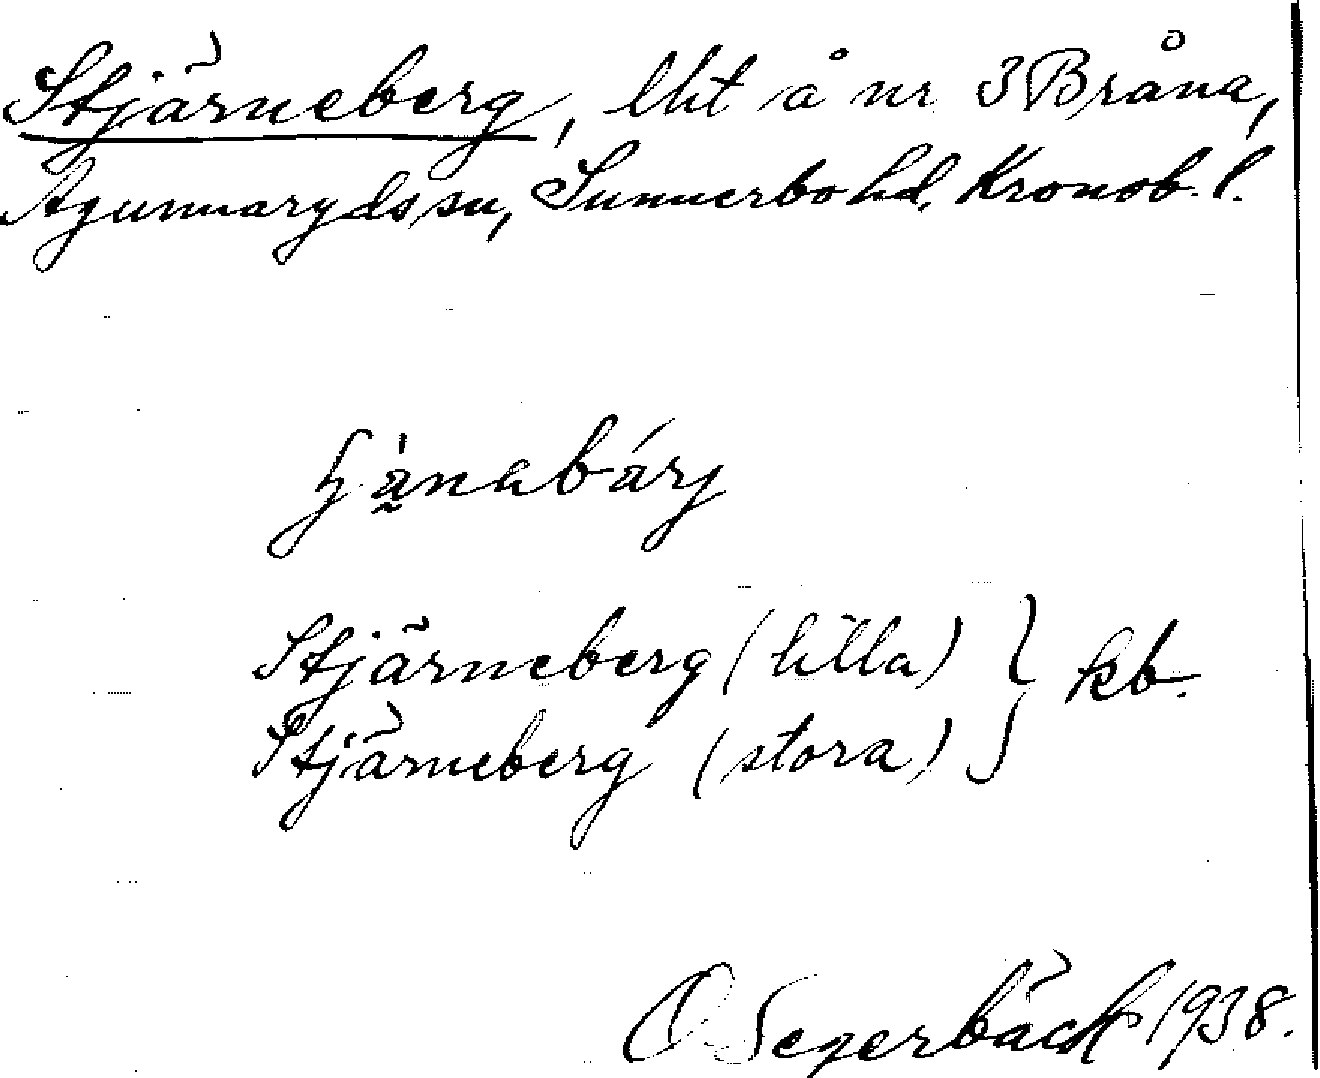 Stjärneberg, lht å nr 3 Bråna,
Agunnaryds sn, Sunnerbo hd. Kronob. l.
Stjärneberg (lilla) } kb.
Stjärneberg (stora)
O Segerbäck 1938.